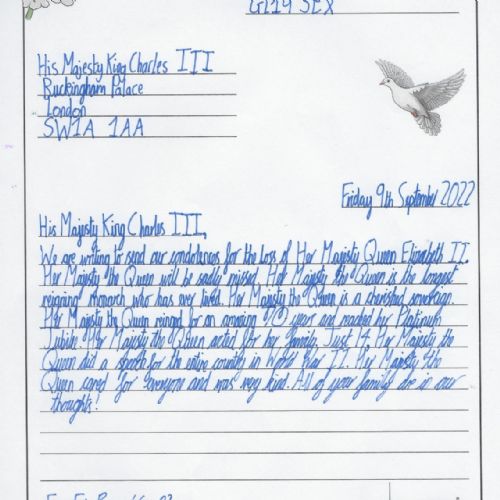 GL19 3EX
His Majesty King Charles III
Buckingham Palace
London
SW1A 1AA
Friday 9th September 2022
His Majesty King Charles III,
We are writing to send our condolences for the loss of Her Majesty Queen Elizabeth II.
Her Majesty the Queen will be sadly missed. Her Majesty the Queen is the longest
reigning monarch who has ever lived. Her Majesty the Queen is a cherished sovereign.
Her Majesty the Queen reigned for an amazing 70 year and reached her Platinum
Jubilee. Her Majesty the Queen acted for her family. Just 14, Her Majesty the
Queen did a speech for the entire country in World War II. Her Majesty the
Queen cared for everyone and was very kind. All of your family are in our
thoughts!